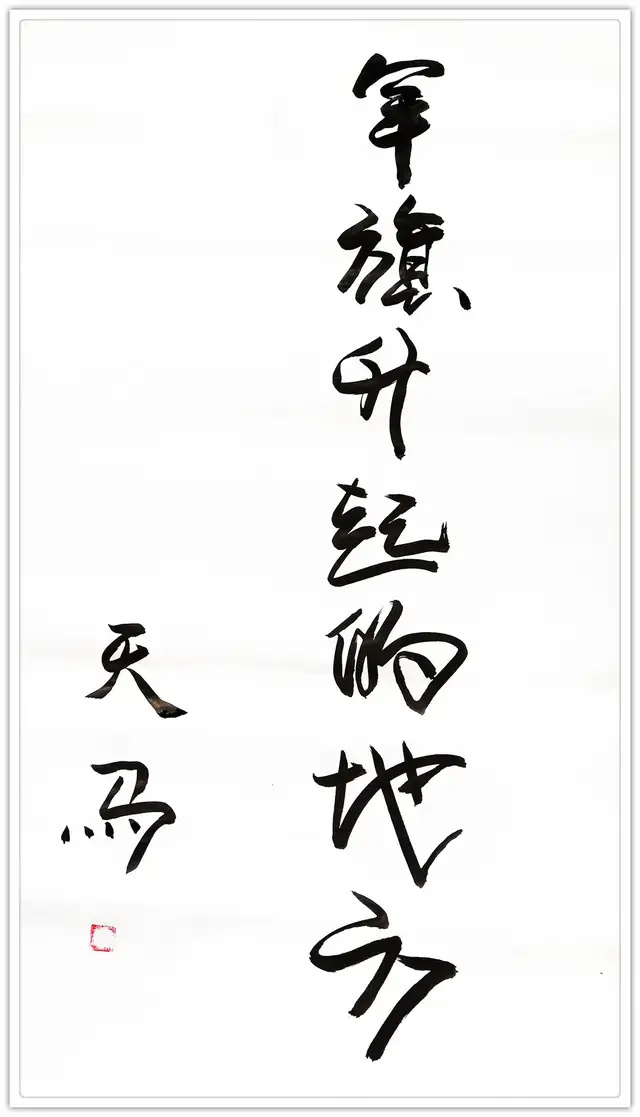 军旗升起的地方
天马